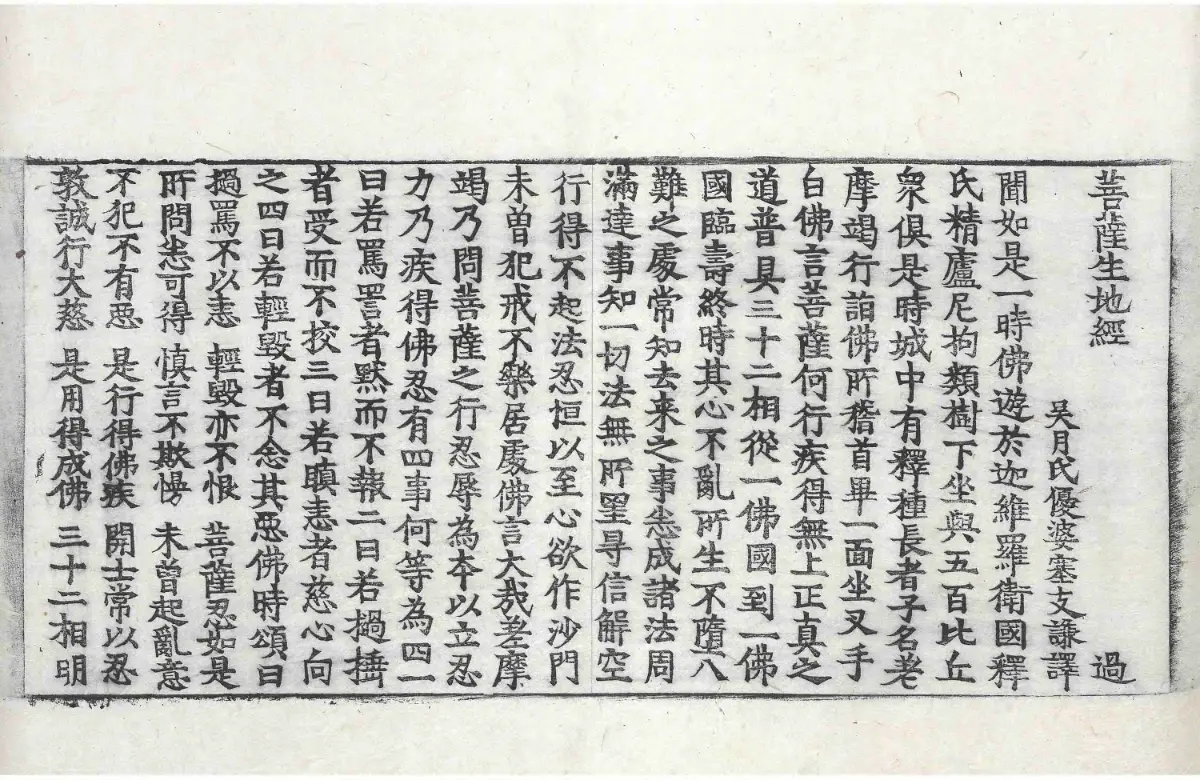 菩薩生地經 過
吴月氏優婆塞支謙譯
聞如是一時佛遊於迦維羅衛國釋
氏精廬尼拘類樹下坐與五百比丘
衆俱是時城中有釋種長者子名差
摩竭行詣佛所稽首畢一面坐叉手
白佛言菩薩何行疾得無上正真之
道普具三十二相從一佛國到一佛
國臨壽終時其心不亂所生不墮八
難之處常知去來之事悉成諸法周
滿達事知一切法無所罣㝵信解空
行得不起法忍恒以至心欲作沙門
未曽犯戒不樂居處佛言大哉差摩
竭乃問菩薩之行忍辱為夲以立忍
力乃疾得佛忍有四事何等為四一
曰若罵詈者黙而不報二曰若撾捶
者受而不挍三曰若瞋恚者慈心向
之四曰若輕毀者不念其惡佛時頌曰
撾罵不以恚 輕毀亦不恨 菩薩忍如是
所問悉可得 慎言不欺慢 未曽起亂意
不犯不有惡 是行得佛疾 開士常以忍
敦誠行大慈 是用得成佛 三十二相明